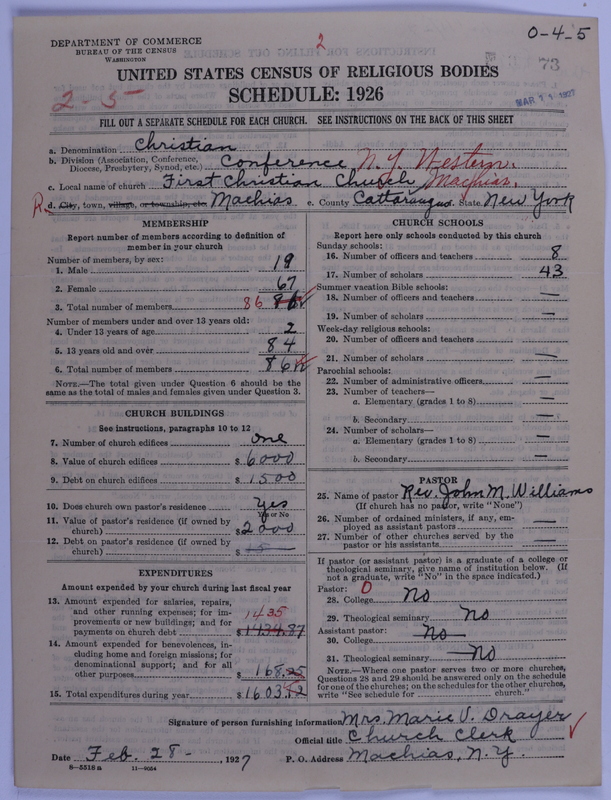 O-4-5
2
DEPARTMENT OF COMMERCE
BUREAU OF THE CENSUS
WASHINGTON
73
UNITED STATES CENSUS OF RELIGIOUS BODIES
MAR 11 1927
2-5
SCHEDULE: 1926
FILL OUT A SEPARATE SCHEDULE FOR EACH CHURCH. SEE INSTRUCTIONS ON THE BACK OF THIS SHEET
a. Denomination Christian
b. Division (Association, Conference, Diocese, Presbytery, Synod, etc.) Conference N. Y. Western.
c. Local name of church First Christian Church Machias.
R. d. City, town, village, or township, etc. Machias e. County Cattaraugus. State New York
MEMBERSHIP
Report number of members according to definition of
member in your church
Number of members, by sex:
1. Male 19
2. Female 67
3. Total number of members 86 86
Number of members under and over 13 years old:
4. Under 13 years of age 2
5. 13 years old and over 84
6. Total number of members 86
NOTE.—The total given under Question 6 should be the
same as the total of males and females given under Question 3.
CHURCH BUILDINGS
See instructions, paragraphs 10 to 12
7. Number of church edifices one
8. Value of church edifices $ 6000
9. Debt on church edifices $ 1500
10. Does church own pastor's residence Yes
Yes or No
11. Value of pastor's residence (if owned by
church) $ 2000
12. Debt on pastor's residence (if owned by
church) $
EXPENDITURES
Amount expended by your church during last fiscal year
13. Amount expended for salaries, repairs,
and other running expenses; for im-
provements or new buildings; and for 1435
payments on church debt $ 1434.87
14. Amount expended for benevolences, in-
cluding home and foreign missions; for
denominational support; and for all
other purposes $ 168.25
15. Total expenditures during year $ 1603.12
CHURCH SCHOOLS
Report here only schools conducted by this church
Sunday schools:
16. Number of officers and teachers 8
17. Number of scholars 43
Summer vacation Bible schools:
18. Number of officers and teachers —
19. Number of scholars —
Week-day religious schools:
20. Number of officers and teachers —
21. Number of scholars —
Parochial schools:
22. Number of administrative officers —
23. Number of teachers—
a. Elementary (grades 1 to 8) —
b. Secondary —
24. Number of scholars—
a. Elementary (grades 1 to 8) —
b. Secondary —
PASTOR
25. Name of pastor Rev. John M. Williams
(If church has no pastor, write "None")
26. Number of ordained ministers, if any, em-
ployed as assistant pastors —
27. Number of other churches served by the
pastor or his assistants —
If pastor (or assistant pastor) is a graduate of a college or
theological seminary, give name of institution below. (If
not a graduate, write "No" in the space indicated.)
Pastor: 0
28. College No
29. Theological seminary No
Assistant pastor:
30. College No
31. Theological seminary No
NOTE.—Where one pastor serves two or more churches,
Questions 28 and 29 should be answered only on the schedule
for one of the churches; on the schedules for the other churches,
write "See schedule for church."
Signature of person furnishing information Mrs. Marie V. Drayer
Official title Church Clerk
Date Feb. 28 -, 1927 P. O. Address Machias, N.Y.
8—5518 a 11—9054